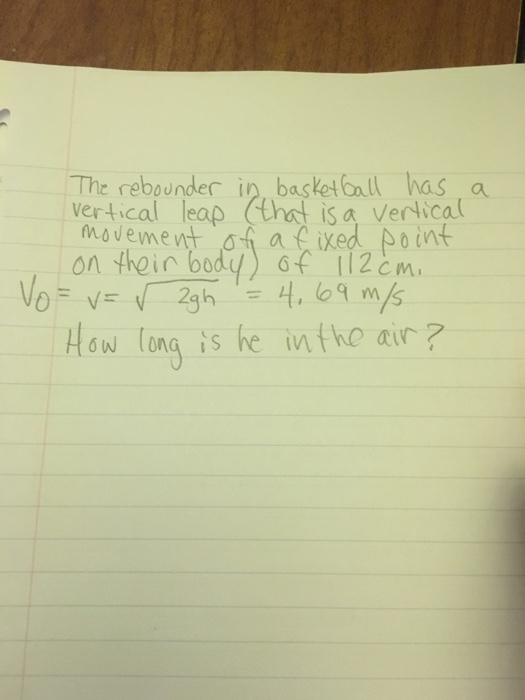 The rebounder in basketball has a
vertical leap (that is a vertical
movement of a fixed point
on their body) of 112cm.
V0 = v = √2gh = 4.69 m/s
How long is he in the air?